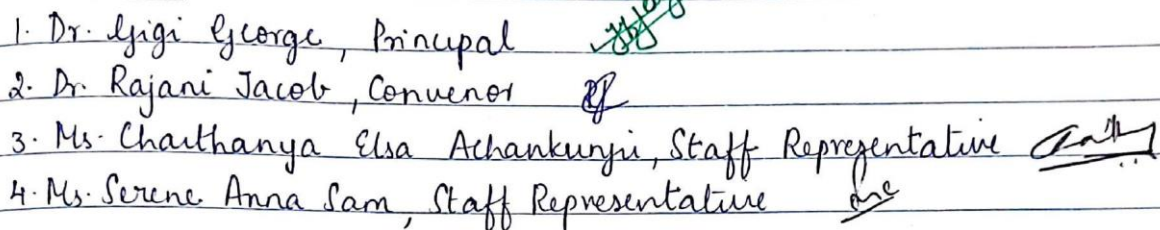 1. Dr. Gigi George, Principal
2. Dr. Rajani Jacob, Convenor
3. Ms. Chaithanya Elsa Achankunju, Staff Representative
4. Ms. Serene Anna Sam, Staff Representative